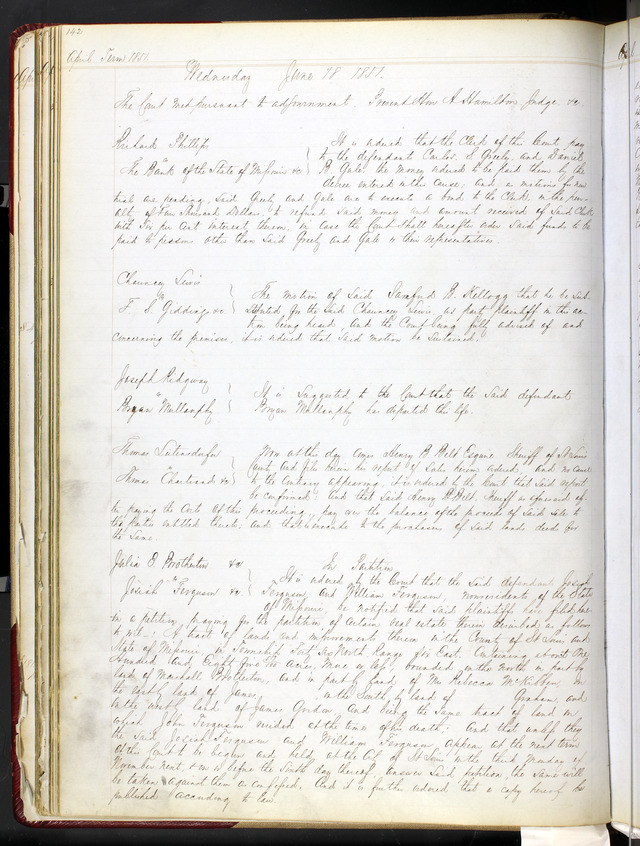 142
April Term 1851.
Wednesday June 18 1851.
The Court met pursuant to adjournment. Present Hon A Hamilton Judge &c
Richard Phillips
vs
The Bank of the State of Missouri &c
It is ordered that the Clerk of this Court pay
to the defendants Carlos S. Greely and Daniel
B. Gale the money ordered to be paid them by the
decree entered in this cause; and a motion for new
trial are pending, said Greely and Gale are to execute a bond to the Clerk in the pen-
alty of Thousand Dollars, to refund said money and amount received of said Clerk
with Six per Cent interest thereon, in case the Court shall hereafter order said funds to be
paid to person other than said Greely and Gale or their representatives.
Chauncey Lewis
vs
F. S. Giddings &c
The motion of said Sanford B. Kellogg that he be sub-
stituted for the said Chauncey Lewis as part plaintiff in this ac-
tion being heard, and the Court being fully advised of and
concerning the premises, it is ordered that said motion be sustained.
Joseph Ridgway
vs
Bryan Mullanphy
It is suggested to the Court that the said defendant
Bryan Mullanphy has departed this life.
Thomas
vs
Thomas &c
Now at this day comes Henry B Belt Esquire Sheriff of St Louis
County and files herein his report of Sales herein ordered, and no cause
to the contrary appearing, it is ordered by the Court that said report
be confirmed, and that said Henry B Belt, Sheriff
paying the costs of this proceeding, pay over the balance of the proceeds of said sale to
the parties entitled thereto, and that he execute to the purchasers of said lands deeds for
the same.
Julia E. Brotherton &c
vs
Josiah Ferguson &c
In Partition
It is ordered by the Court that the said defendants Josiah
Ferguson and William Ferguson, nonresidents of the State
of Missouri, be notified that said plaintiffs have filed here-
in a petition, praying for the partition of certain real estate therein described as follows
to wit: A tract of land and improvements thereon in the County of St Louis and
State of Missouri, in Township Forty Six North Range Six East, Containing about One
Hundred and Eighty Acres, more or less, bounded on the North in part by
land of Marshall Brotherton, and in part by land of Mrs Rebecca, on
the east by land of James, on the South by land of Graham, and
on the west by land of James Gordon, and being the same tract of land on
which John Ferguson resided at the time of his death; And that unless they
the said Josiah Ferguson and William Ferguson, appear at the next term
of this Court to be begun and held at the City of St Louis on the third Monday of
November next, & on or before the Sixth day thereof, answer said petition, the same will
be taken against them as confessed. And it is further ordered that a copy hereof be
published according to law.